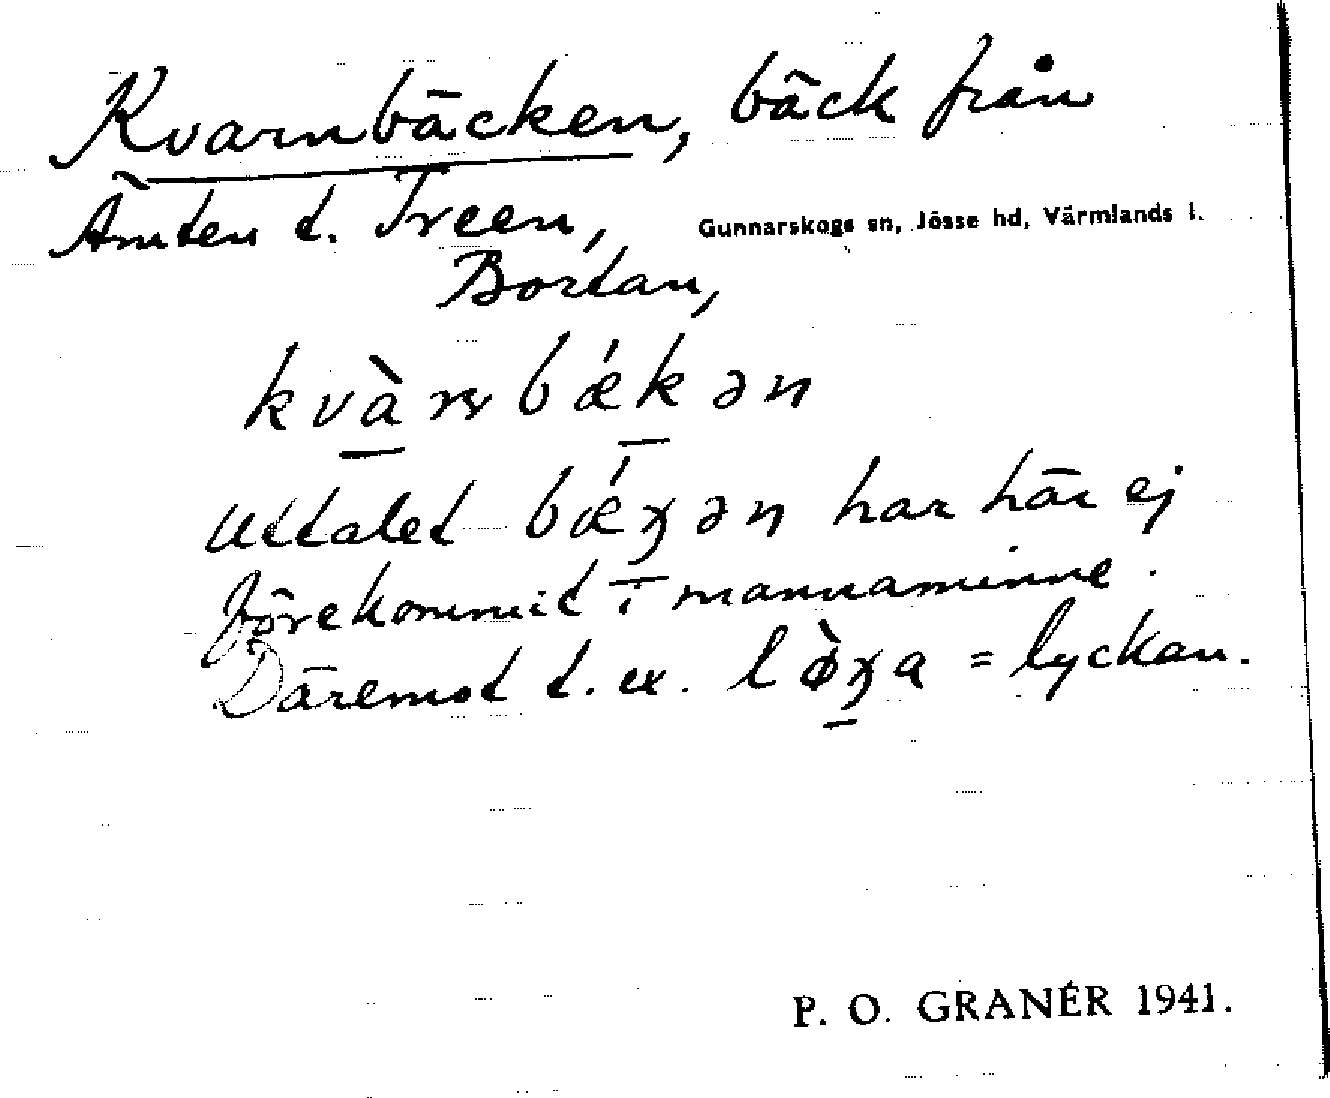 Kvarnbäcken, bäck från
Ämten t. Treen,
Gunnarskogs sn, Jösse hd, Värmlands l.
Bortan,
kvàɳbǽkən
Uttalet bǽɣən har här ej
förekommit i mannaminne.
Däremot t. ex. lø̀ɣa = lyckan.
P. O. GRANÉR 1941.